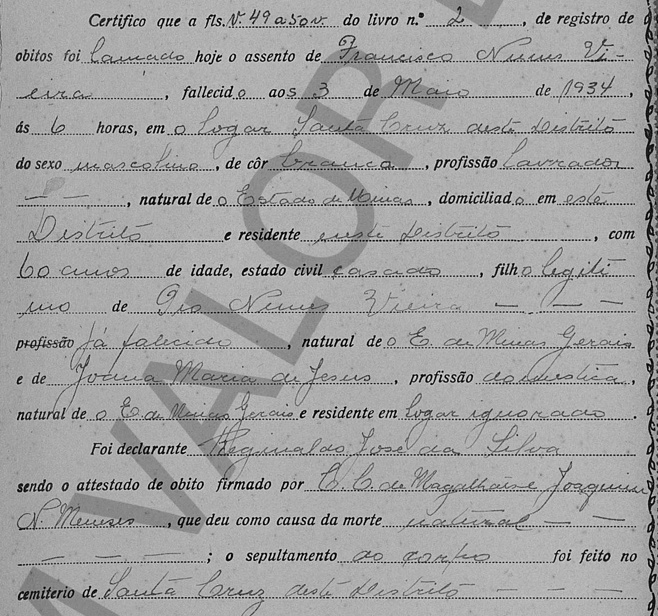 Certifico que a fls. Nº 49 a 50 v. do livro n.º 2, de registro de
obitos foi lançado hoje o assento de Francisco Nunes Vi-
eira, fallecido aos 3 de Maio de 1934,
ás 6 horas, em o logar Santa Cruz deste Distrito
do sexo mascolino, de côr branca, profissão Lavrador
— —, natural de o Estado de Minas, domiciliado em este
Distrito e residente neste Distrito, com
60 anos de idade, estado civil casado, filho legiti
mo de Pio Nunes Vieira — — —
profissão já falecido, natural de o E. de Minas Gerais
e de Joana Maria de Jesus, profissão domestica,
natural de o E. de Minas Gerais e residente em logar ignorado.
Foi declarante Reginaldo José da Silva
sendo o attestado de obito firmado por C. C. de Magalhães e Joaquim
N. Meneses, que deu como causa da morte natural — —
— — — —; o sepultamento do corpo foi feito no
cemiterio de Santa Cruz deste Distrito — — —
VALOR